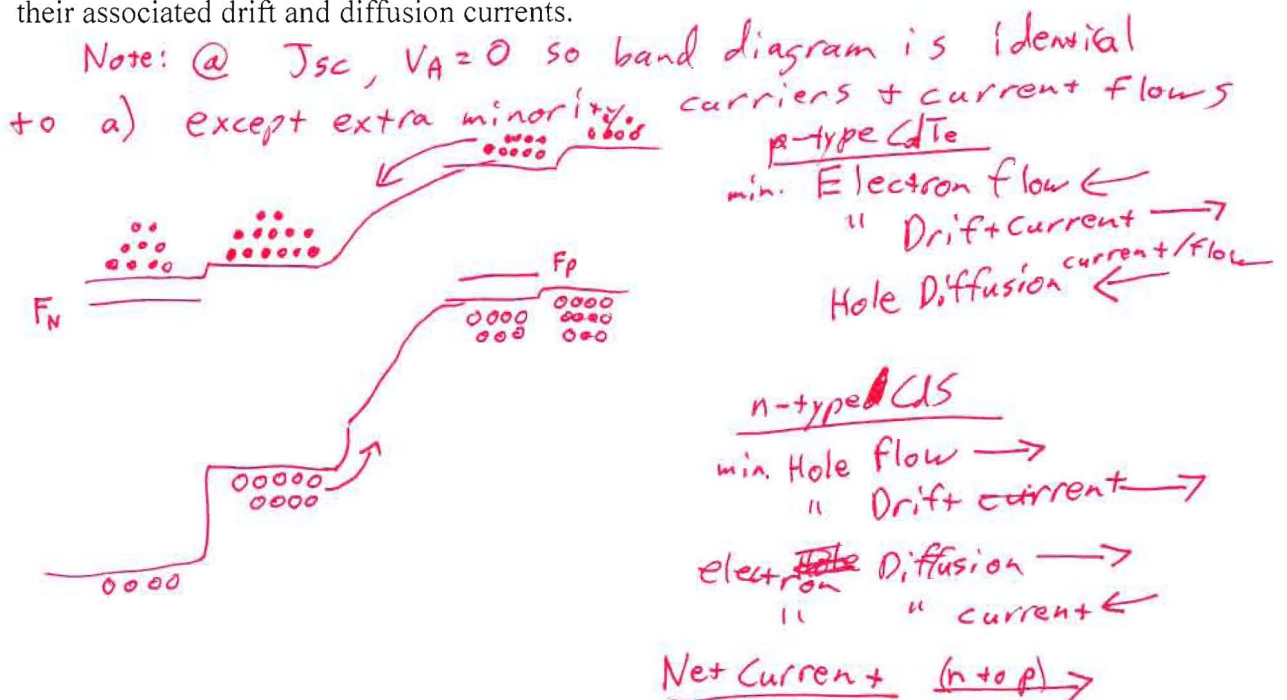 their associated drift and diffusion currents.
Note: @ Jsc, VA = 0 so band diagram is idential
to a) except extra minority. carriers + current flows
p-type CdTe
min. Electron flow ←
" Drift Current →
Hole Diffusion current/flow ←
Fp
FN
n-type CdS
min. Hole flow →
" Drift current →
electron Diffusion →
" " current ←
Net Current (n to p) →